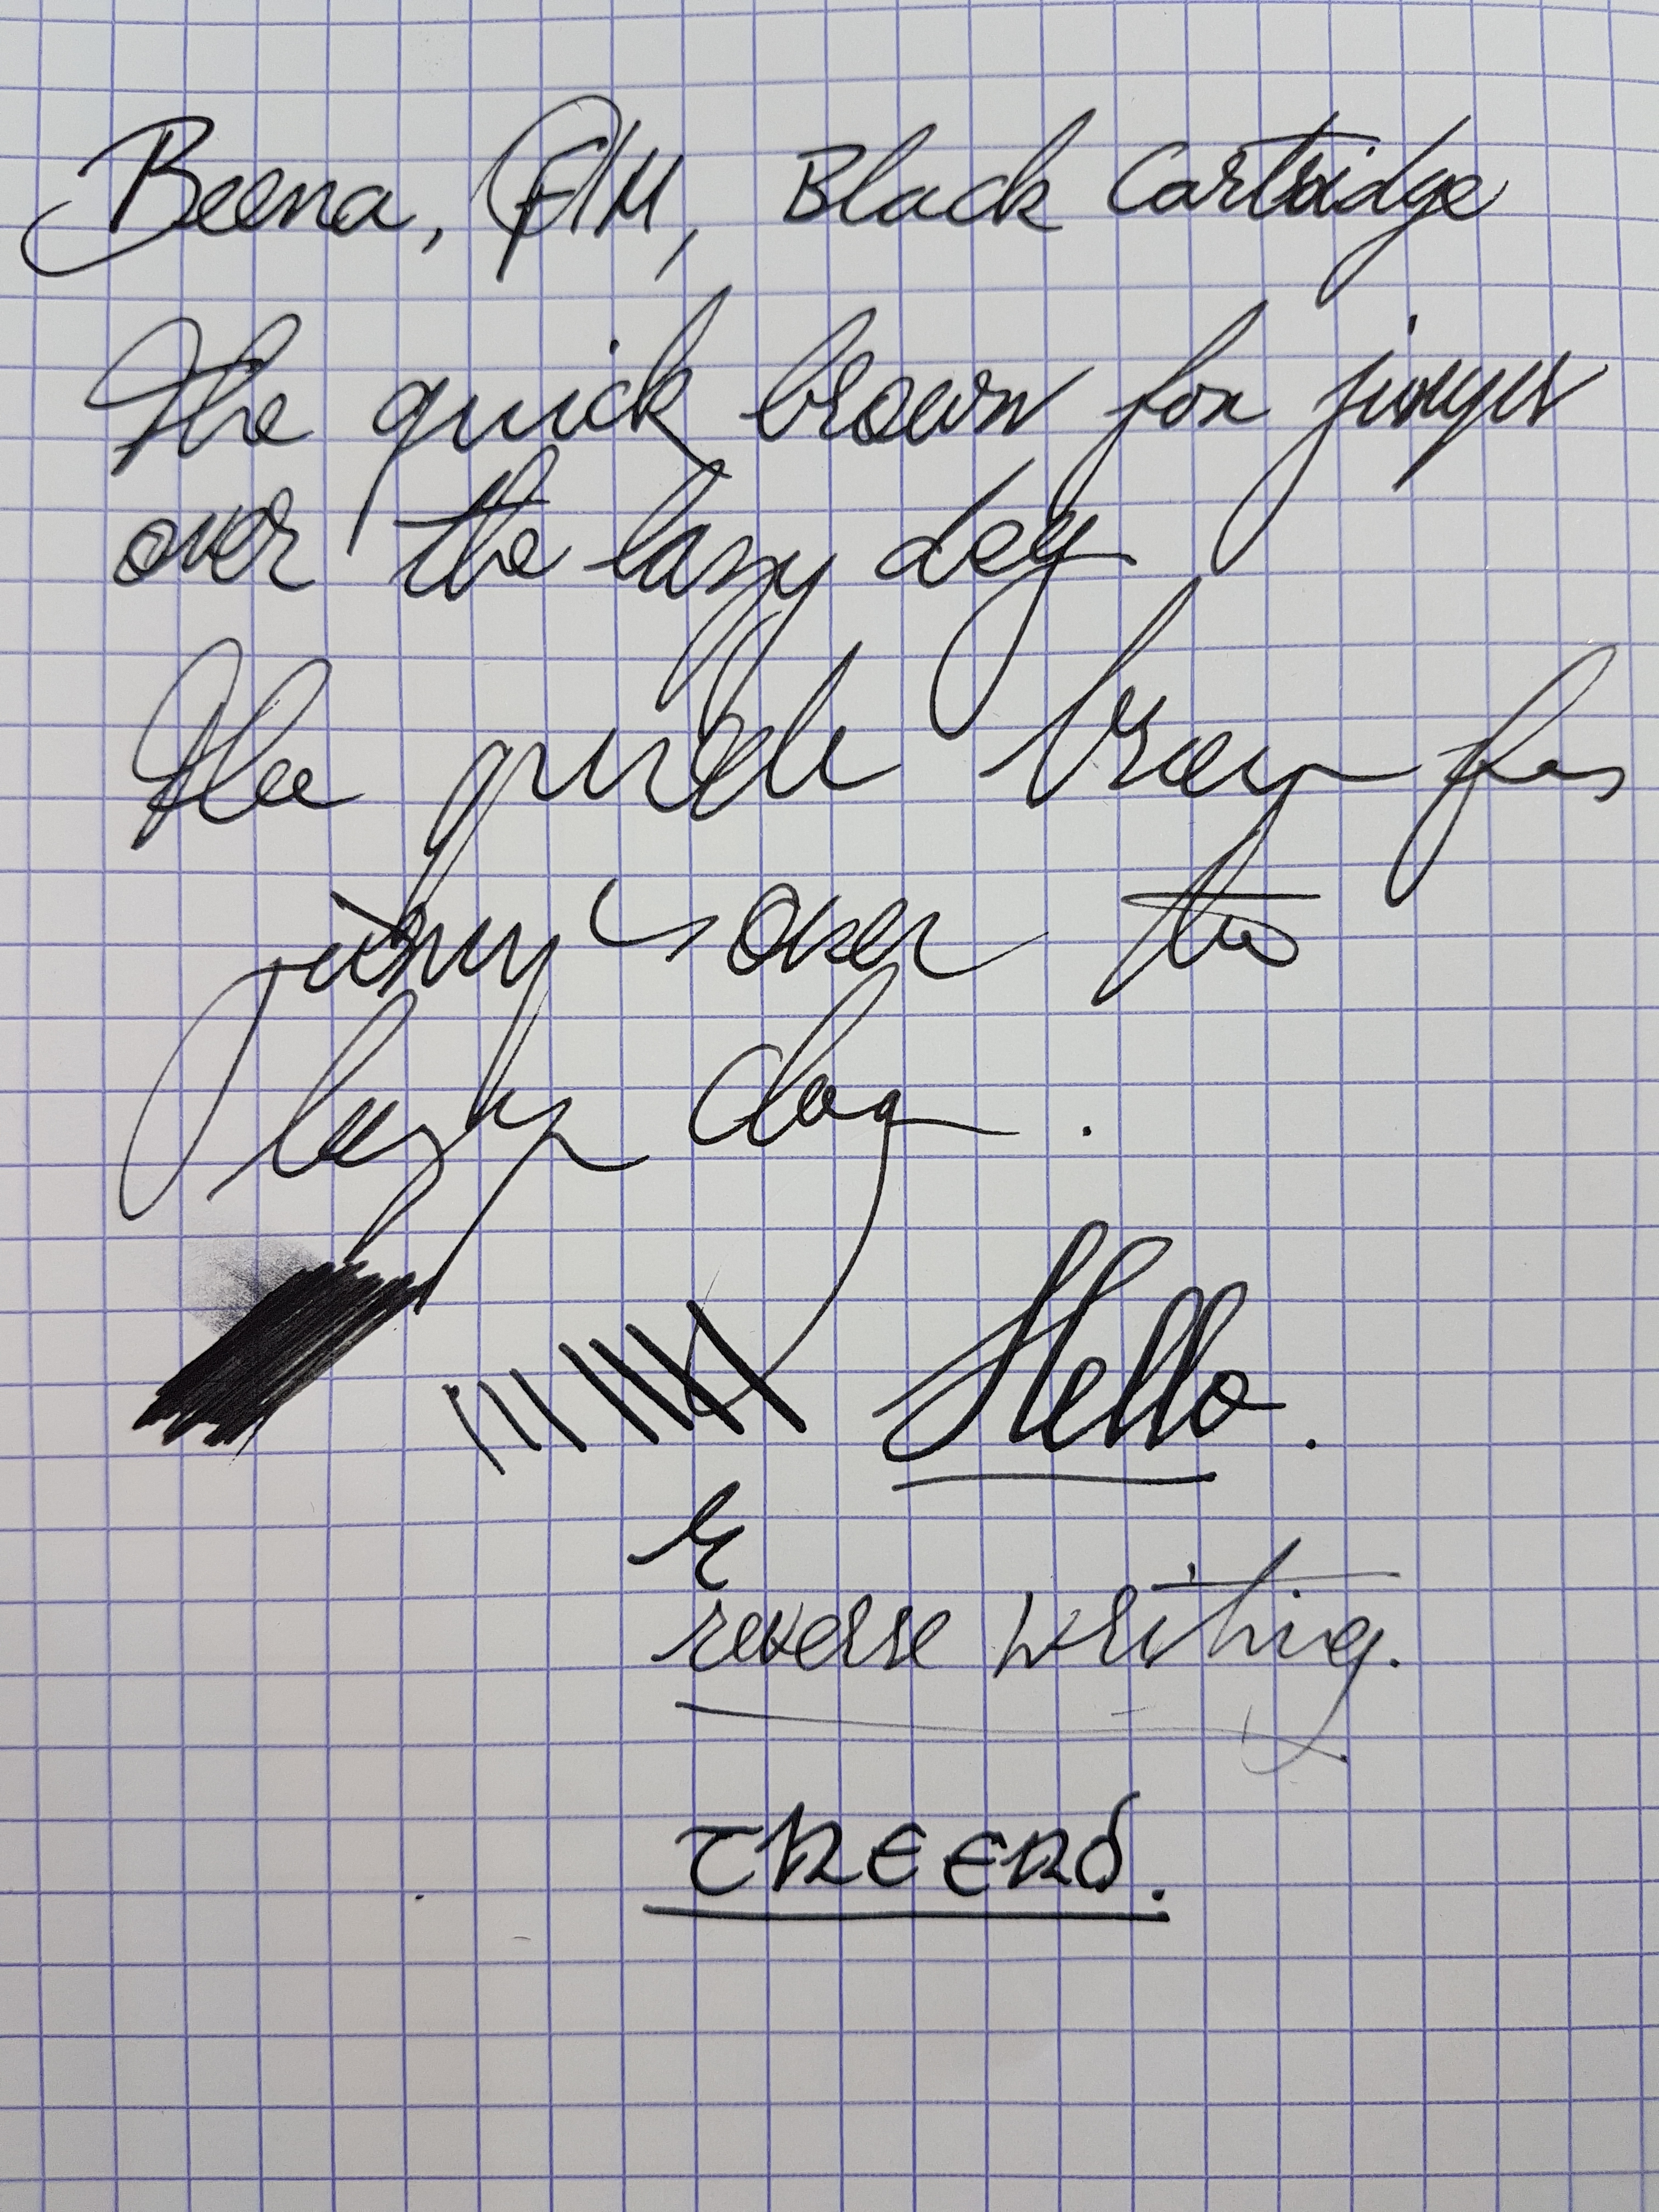 Beena, F/M, Black Cartridge
The quick brown fox jumps
over the lazy dog
The quick brown fox
jumps over the
lazy dog.
Hello.
r
reverse writing.
the end.